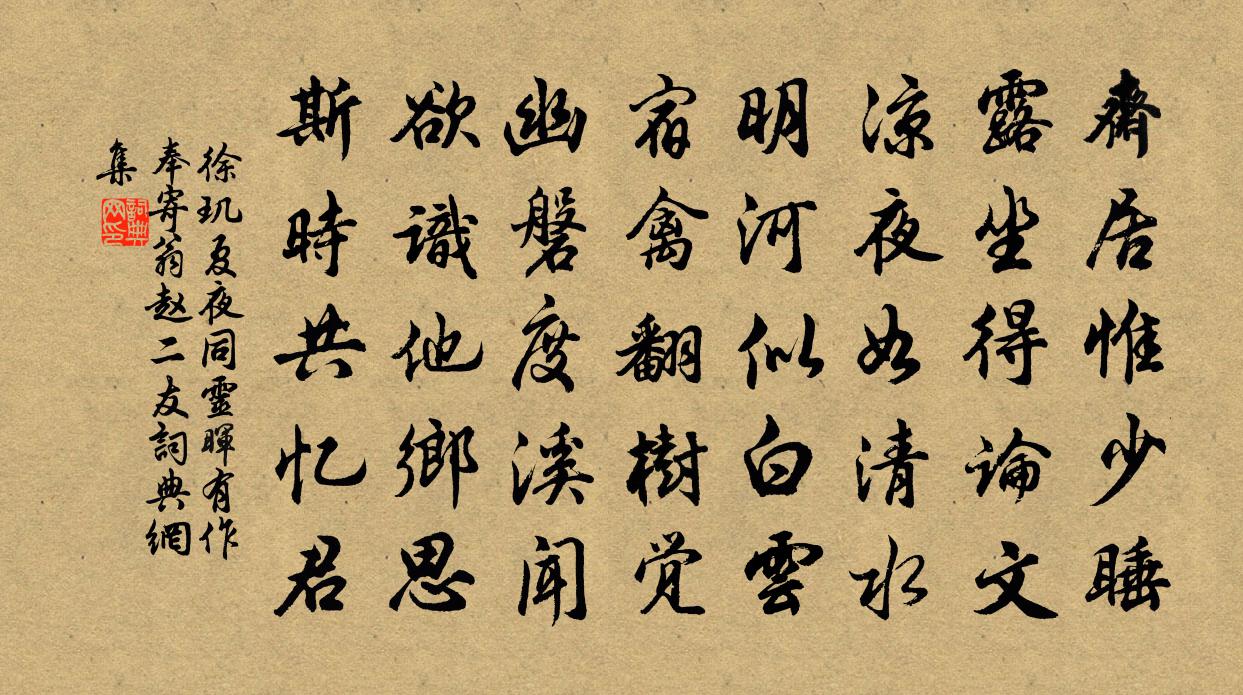 齋居惟少睡
露坐得論文
涼夜如清水
明河似白雲
宿禽翻樹覺
幽磬度溪聞
欲識他鄉思
斯時共忆君
徐玑夏夜同靈暉有作
奉寄翁赵二友詞典網
集
詞典